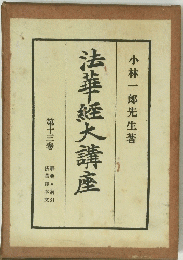 小林一郎先生著
法華經大講座
第十三卷